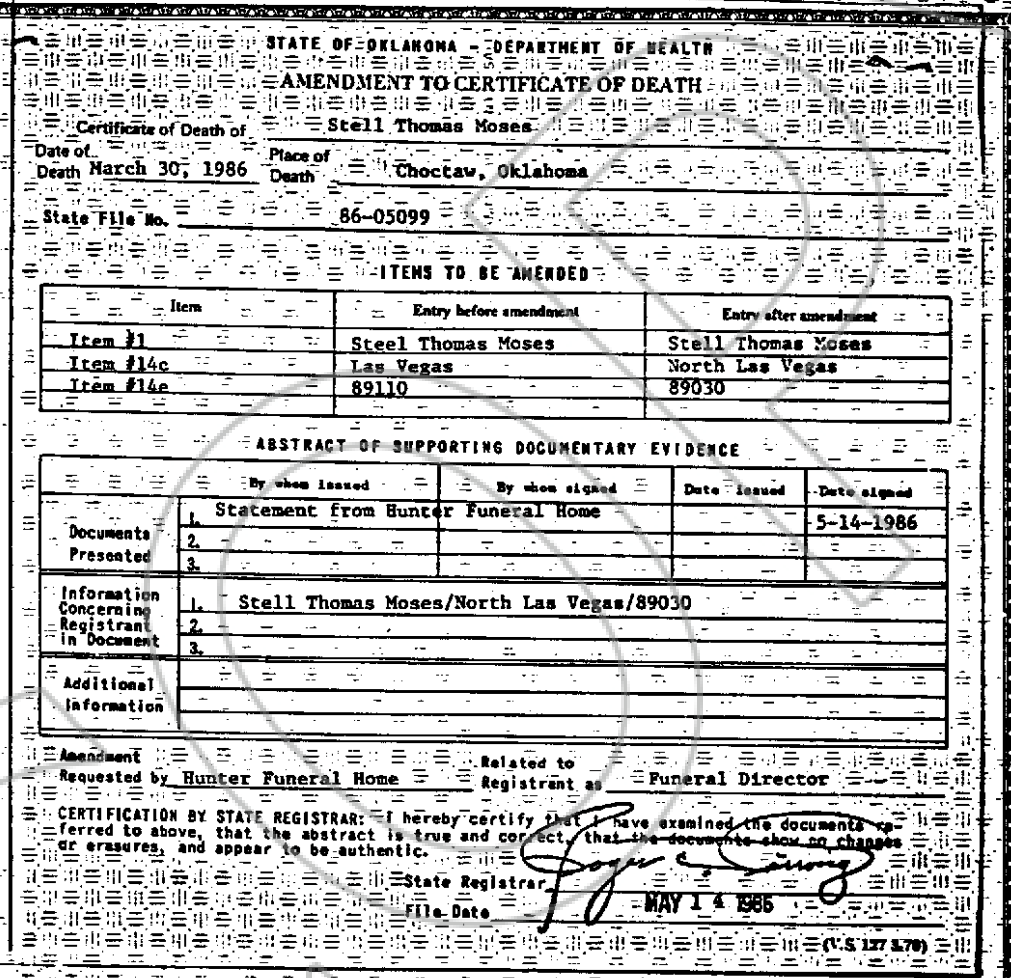 STATE OF OKLAHOMA - DEPARTMENT OF HEALTH
AMENDMENT TO CERTIFICATE OF DEATH
Certificate of Death of Stell Thomas Moses
Date of Death March 30, 1986 Place of Death Choctaw, Oklahoma
State File No. 86-05099
ITEMS TO BE AMENDED
Item Entry before amendment Entry after amendment
Item #1 Steel Thomas Moses Stell Thomas Moses
Item #14c Las Vegas North Las Vegas
Item #14e 89110 89030
ABSTRACT OF SUPPORTING DOCUMENTARY EVIDENCE
By whom issued By whom signed Date issued Date signed
Documents Presented
1. Statement from Hunter Funeral Home 5-14-1986
2.
3.
Information Concerning Registrant in Document
1. Stell Thomas Moses/North Las Vegas/89030
2.
3.
Additional Information
Amendment Requested by Hunter Funeral Home Related to Registrant as Funeral Director
CERTIFICATION BY STATE REGISTRAR: I hereby certify that I have examined the documents re-
ferred to above, that the abstract is true and correct, that the documents show no changes
or erasures, and appear to be authentic.
State Registrar
File Date MAY 14 1986
(V.S. 127 3.78)